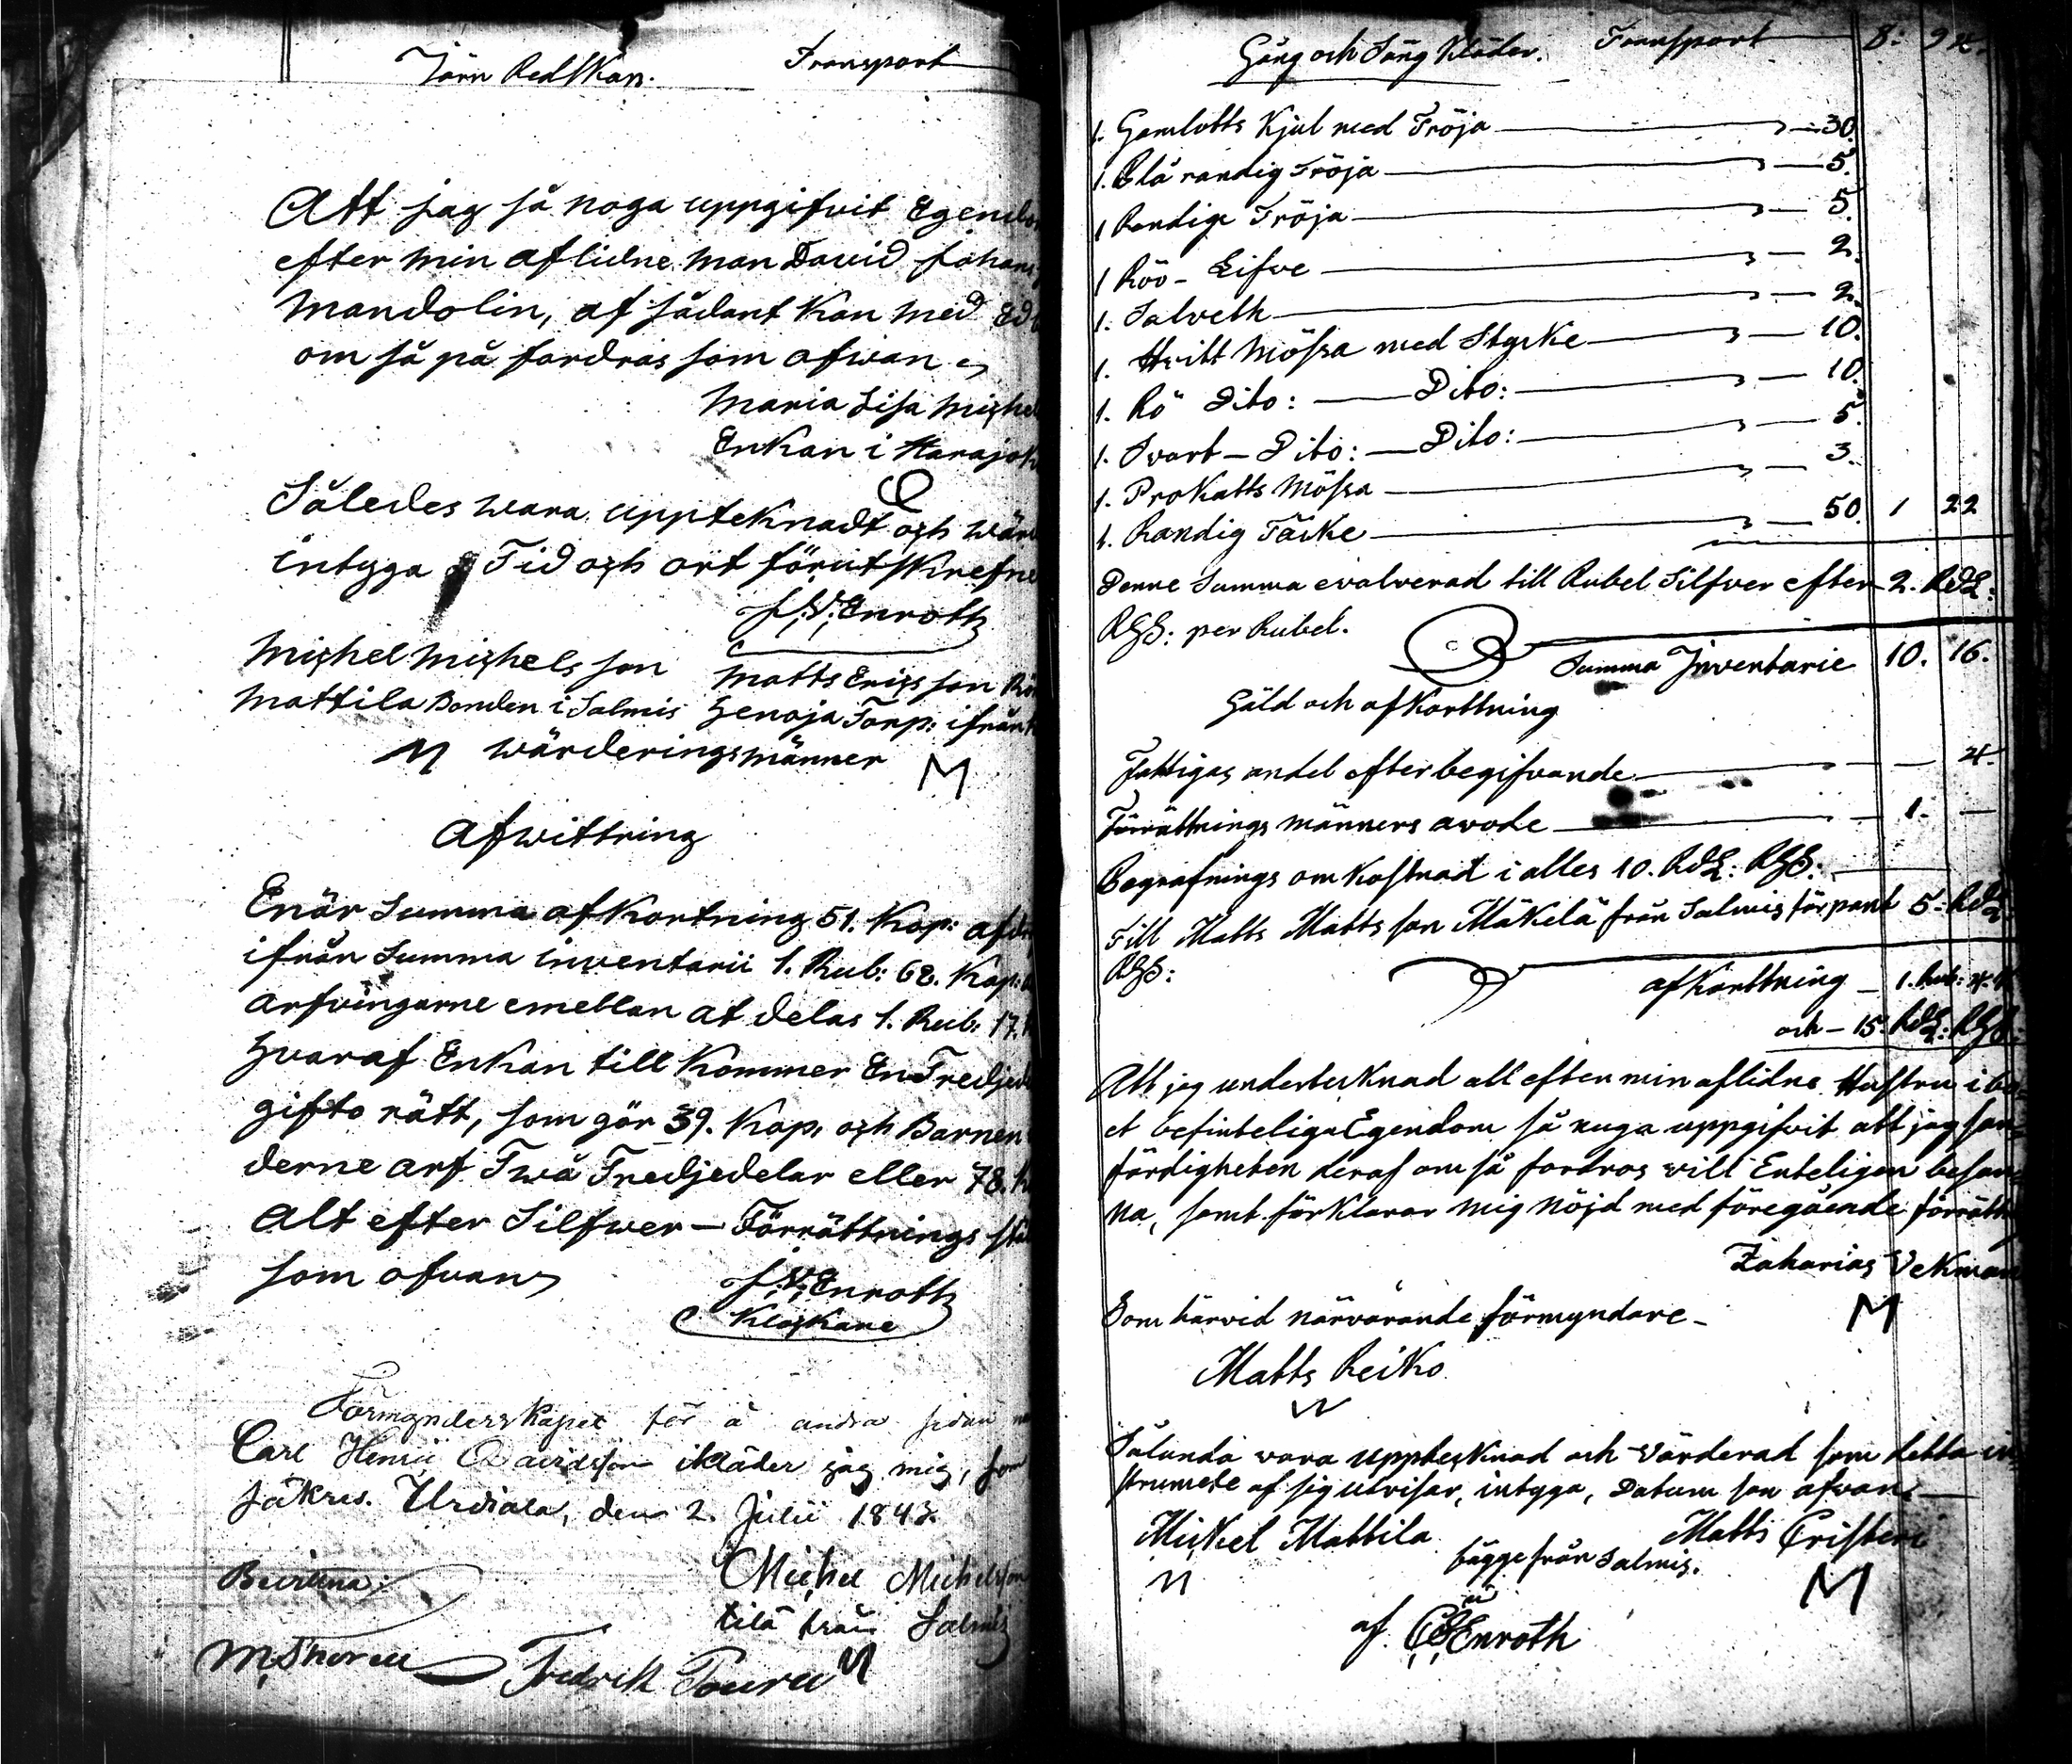 Järn Redskap. Transport
Att jag så noga uppgifvit Egendo
efter min aflidne man David Johans
Mandolin, af sådant kan med Ed
om så på fordras som ofwan
Maria Lisa Michel
Enkan i Harajok
Således wara uppteknadt och wär
intyga Tid och ort förutskrefne
J:V:Enroth
Michel Michelsson Matts Ericsson
Mattila Bonden i Salmis Torp: ifrån
M wärderingsmänner M
Afwittring
Enär Summa afkortning 51. Kop: afdr
ifrån Summa inventarii 1. Rub: 68. Kop:
arfvingarne emellan at delas 1. Rub: 17.
hvaraf Enkan till kommer En Tredjed
gifto rätt, som gör 39. Kop. och Barnen
derne arf Twå Tredjedelar eller 78. k
Alt efter Silfwer — Förrättnings stä
som ofvan
J:V:Enroth
Klockare
Förmynderskapet för å andra sidan
Carl Henric Davidsson ikläder jag mig, som
säkres. Urdiala, den 2. Julii 1843.
Bevittna: Michel Michelsson
tilä från Salmis
Fredrik
Gång och Säng Kläder. Transport 8: 94.
1. Gamlotts Kjul med Tröja 30.
1. Blå randig Tröja 5.
1 Randige Tröja 5.
1 Röö - Lifve 2.
1. Salveth 2.
1. Hvitt Mössa med Stycke 10.
1. Rö Dito: Dito: 10.
1. Svart - Dito: Dito: 5.
1. Prokatts Mössa 3.
1. Randig Täcke 50. 1 22
Denne Summa evalverad till Rubel Silfver efter 2. RdL:
RGS: per Rubel.
Summa Inventarie 10. 16.
Gäld och afkorttning
Fattigas andel efter begifvande 4.
Förrättnings männers arvode 1. —
Begrafnings omkostnad i alles 10. RdL: RGS:
Till Matts Mattsson Mäkelä från Salmis för pant 5: RdL:
RGS: afkorttning 1. Rub: 4.
och — 15. RdL: RGS:
Att jag undertecknad alt efter min aflidne Hustru i bo-
et befinteliga Egendom så noga uppgifvit att jag san-
färdigheten deraf om så fordras vill Edeligen besan-
na, samt förklarar mig nöjd med föregående förrättn
Zaharias Vekman
M
Som härvid närvarande förmyndare -
Matts Reiko
Sålunda vara uppteknad och värderad som detta in-
strumete af sig utvisar, intyga, Datum som ofvan
Mickel Mattila Matts Cristeri
bägge från Salmis.
M
af. Enroth